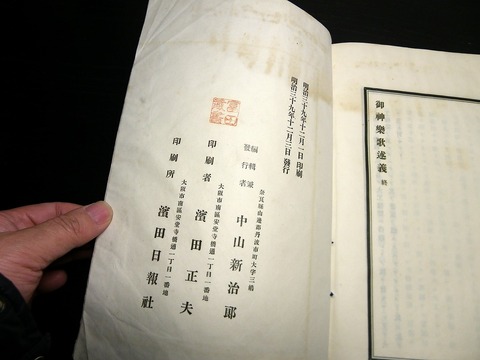 御神樂歌述義 終
明治三十九年十二月一日印刷
明治三十九年十二月三日發行
奈良縣山邊郡丹波市町大字三島
編輯兼
發行者
中山新治郎
大阪市南區安堂寺橋通一丁目一番地
印刷者
濱田正夫
大阪市南區安堂寺橋通一丁目一番地
印刷所
濱田日報社